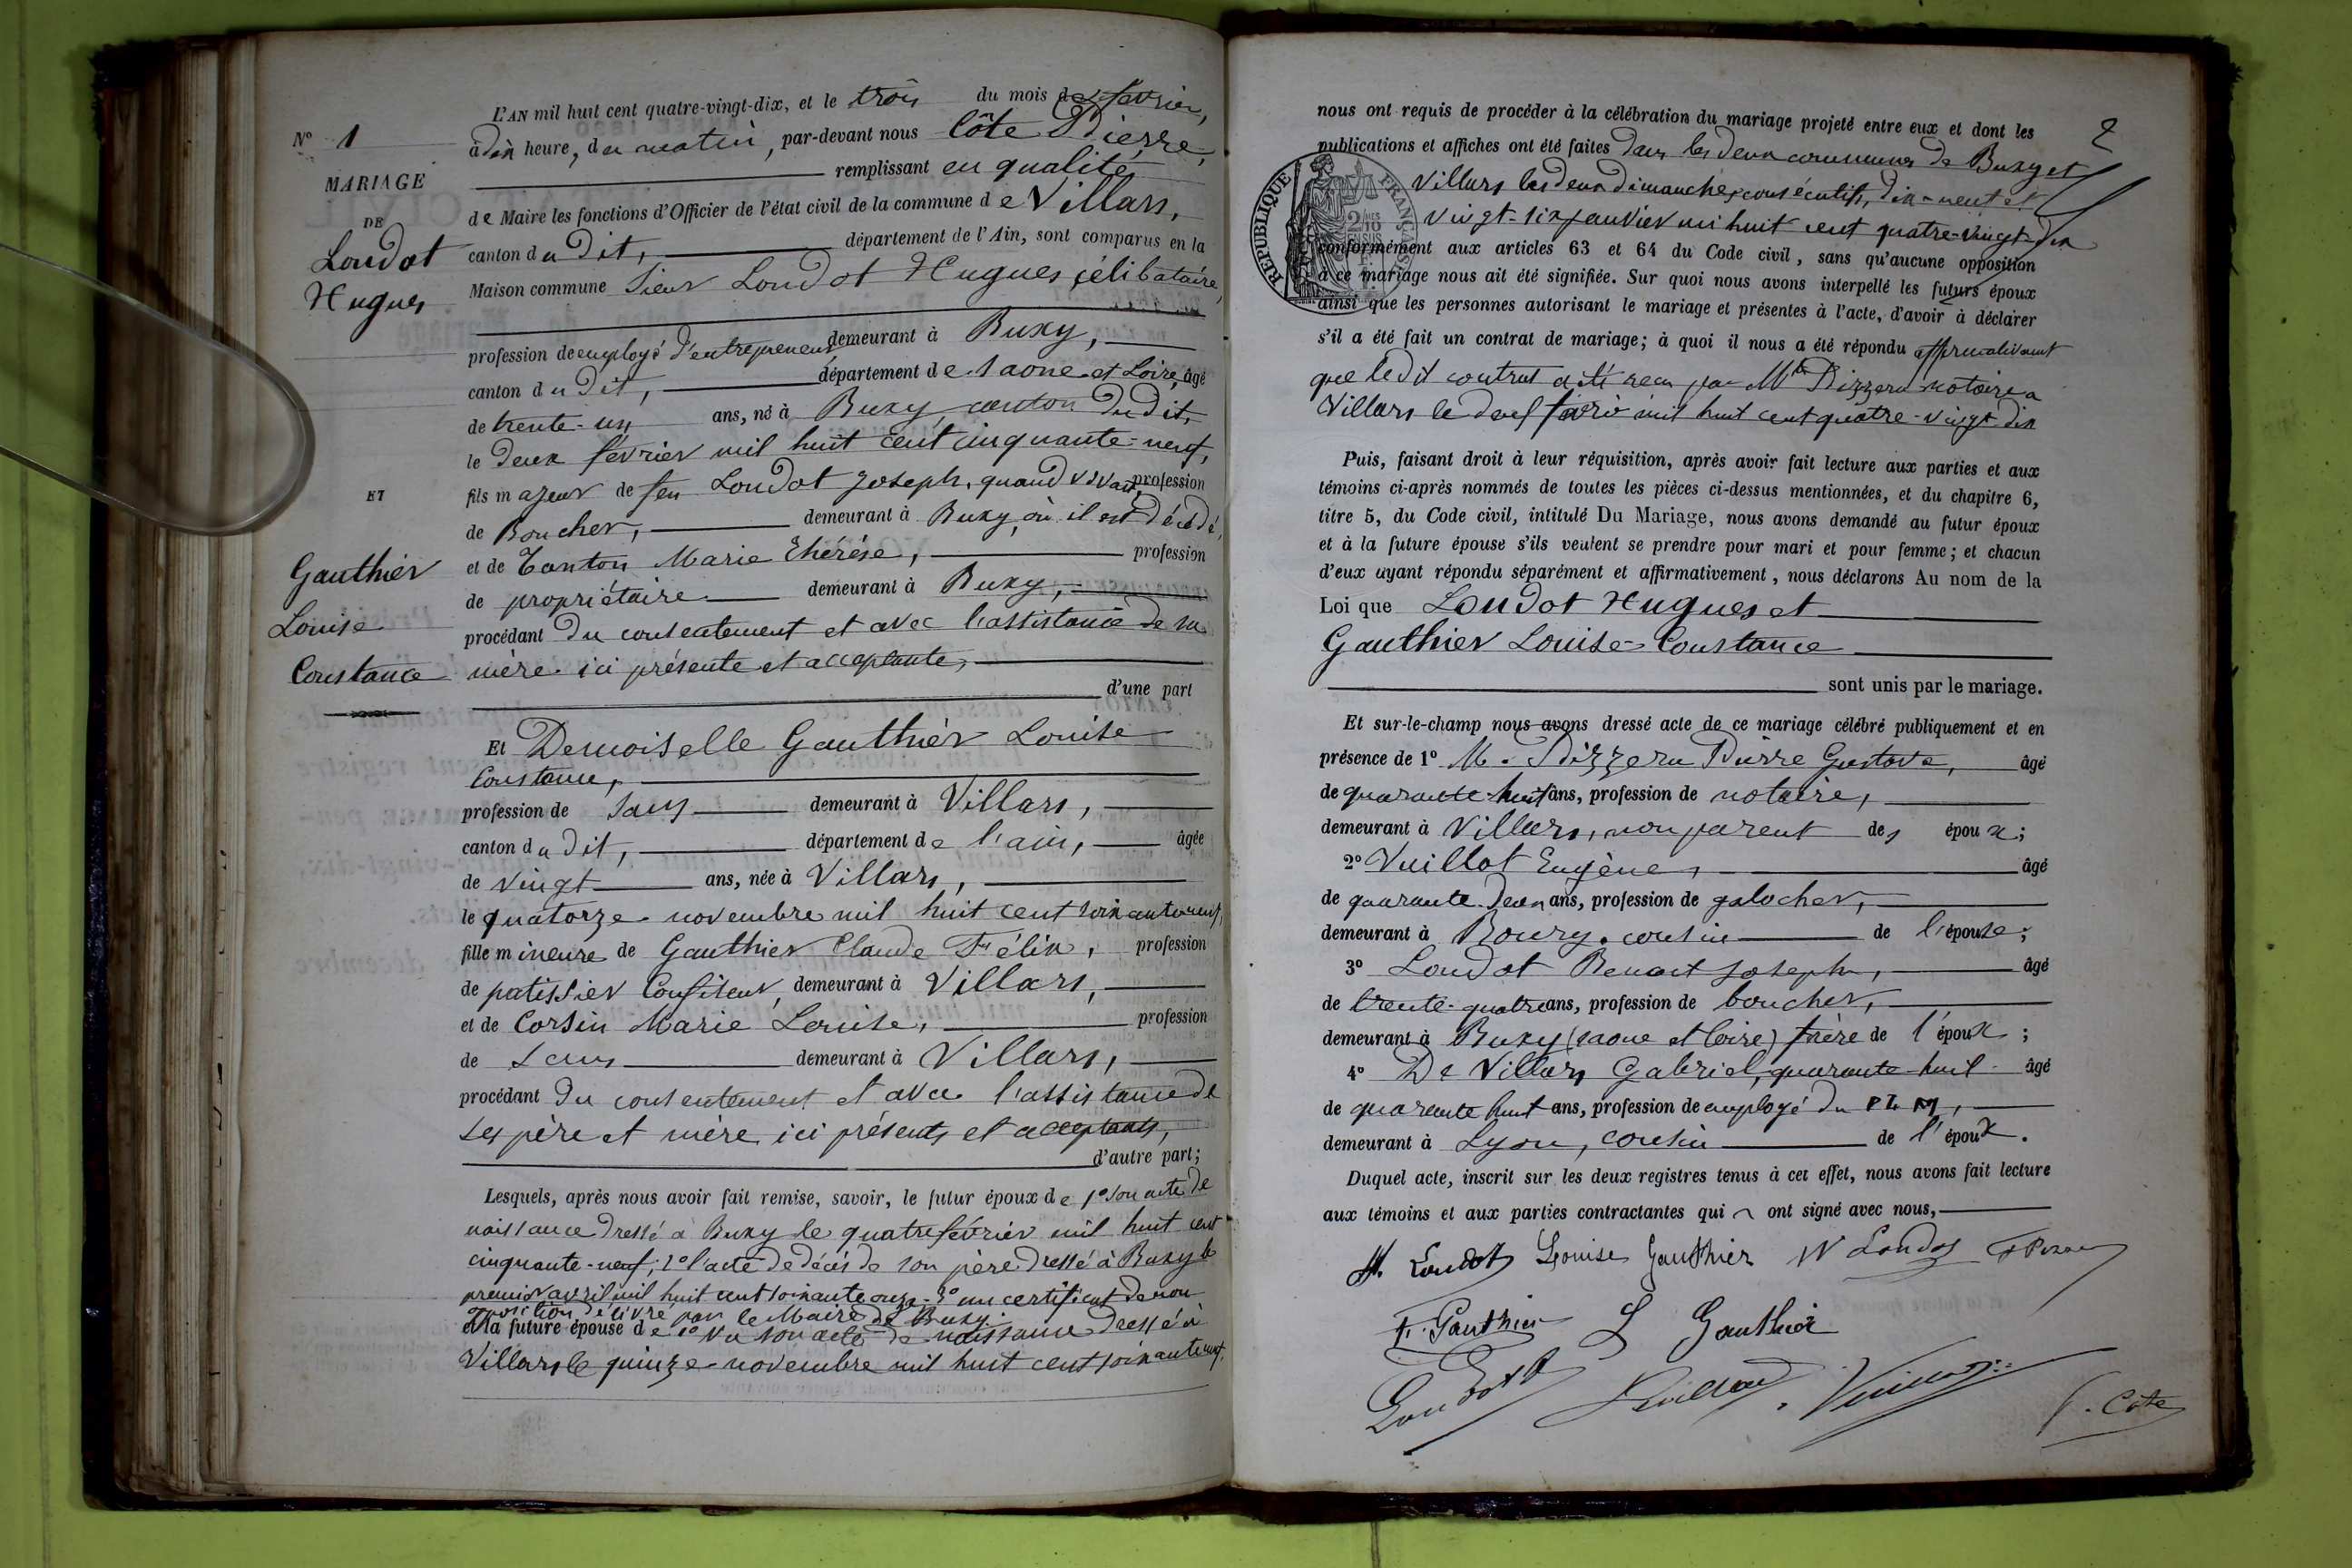 L'AN mil huit cent quatre-vingt-dix, et le trois du mois de février,
à dix heure, du matin, par-devant nous Côte Pierre,
remplissant en qualité
de Maire les fonctions d'Officier de l'état civil de la commune de Villars,
canton du dit, département de l'Ain, sont comparus en la
Maison commune Sieur Loudot Hugues célibataire,
profession de employé d'entrepreneur demeurant à Buxy,
canton du dit, département de Saone et Loire, âgé
de trente-un ans, né à Buxy canton du dit,
le deux février mil huit cent cinquante-neuf,
fils majeur de feu Loudot Joseph, quand vivait, profession
de Boucher, demeurant à Buxy, où il est décédé,
et de Tonton Marie Thérése, profession
de propriétaire demeurant à Buxy,
procédant du consentement et avec l'assistance de sa
mère ici présente et acceptante,
d'une part
Et Demoiselle Gauthier Louise
Constance,
profession de sans demeurant à Villars,
canton du dit, département de l'ain, âgée
de vingt ans, née à Villars,
le quatorze novembre mil huit cent soixante neuf,
fille mineure de Gauthier Claude Félix, profession
de patissier Confiseur, demeurant à Villars,
et de Corsin Marie Louise, profession
de sans demeurant à Villars,
procédant du consentement et avec l'assistance de
ses père et mère ici présents et acceptants,
d'autre part;
Lesquels, après nous avoir fait remise, savoir, le futur époux de 1° son acte de
naissance dressé à Buxy le quatre février mil huit cent
cinquante-neuf; 2° l'acte de décès de son père dressé à Buxy le
premier avril mil huit cent soixante onze - 3° un certificat de non
opposition délivré par le Maire de Buxy
et la future épouse de son acte de naissance dressé à
Villars le quinze novembre mil huit cent soixante neuf.
N° 1
MARIAGE
DE
Loudot
Hugues
ET
Gauthier
Louise
Constance
2
nous ont requis de procéder à la célébration du mariage projeté entre eux et dont les
publications et affiches ont été faites dans les deux communes de Buxy et
Villars les deux dimanches consécutifs, dix-neuf et
vingt-six janvier mil huit cent quatre-vingt-dix
conformément aux articles 63 et 64 du Code civil, sans qu'aucune opposition
à ce mariage nous ait été signifiée. Sur quoi nous avons interpellé les futurs époux
ainsi que les personnes autorisant le mariage et présentes à l'acte, d'avoir à déclarer
s'il a été fait un contrat de mariage; à quoi il nous a été répondu affirmativement
que ledit contrat a été reçu par Mtre Pizzera notaire a
Villars le deux mil huit cent quatre-vingt-dix
RÉPUBLIQUE FRANÇAISE
Puis, faisant droit à leur réquisition, après avoir fait lecture aux parties et aux
témoins ci-après nommés de toutes les pièces ci-dessus mentionnées, et du chapitre 6,
titre 5, du Code civil, intitulé Du Mariage, nous avons demandé au futur époux
et à la future épouse s'ils veulent se prendre pour mari et pour femme; et chacun
d'eux ayant répondu séparément et affirmativement, nous déclarons Au nom de la
Loi que Loudot Hugues et
Gauthier Louise-Constance
sont unis par le mariage.
Et sur-le-champ nous avons dressé acte de ce mariage célébré publiquement et en
présence de 1° M. Pizzera Pierre Gustave, âgé
de quarante-huit ans, profession de notaire,
demeurant à Villars, non parent des époux;
2° Vuillot Eugène, âgé
de quarante-deux ans, profession de galocher,
demeurant à Bourg. cousin de l'épouse;
3° Loudot Benoit Joseph, âgé
de trente-quatre ans, profession de boucher,
demeurant à Buxy (saone et loire) frère de l'époux;
4° De Villars Gabriel, quarante-huit âgé
de quarante huit ans, profession de employé du PLM,
demeurant à Lyon, cousin de l'époux.
Duquel acte, inscrit sur les deux registres tenus à cet effet, nous avons fait lecture
aux témoins et aux parties contractantes qui ont signé avec nous,
H. Loudot Louise Gauthier
F. Gauthier L Gauthier
Loudot
Côte